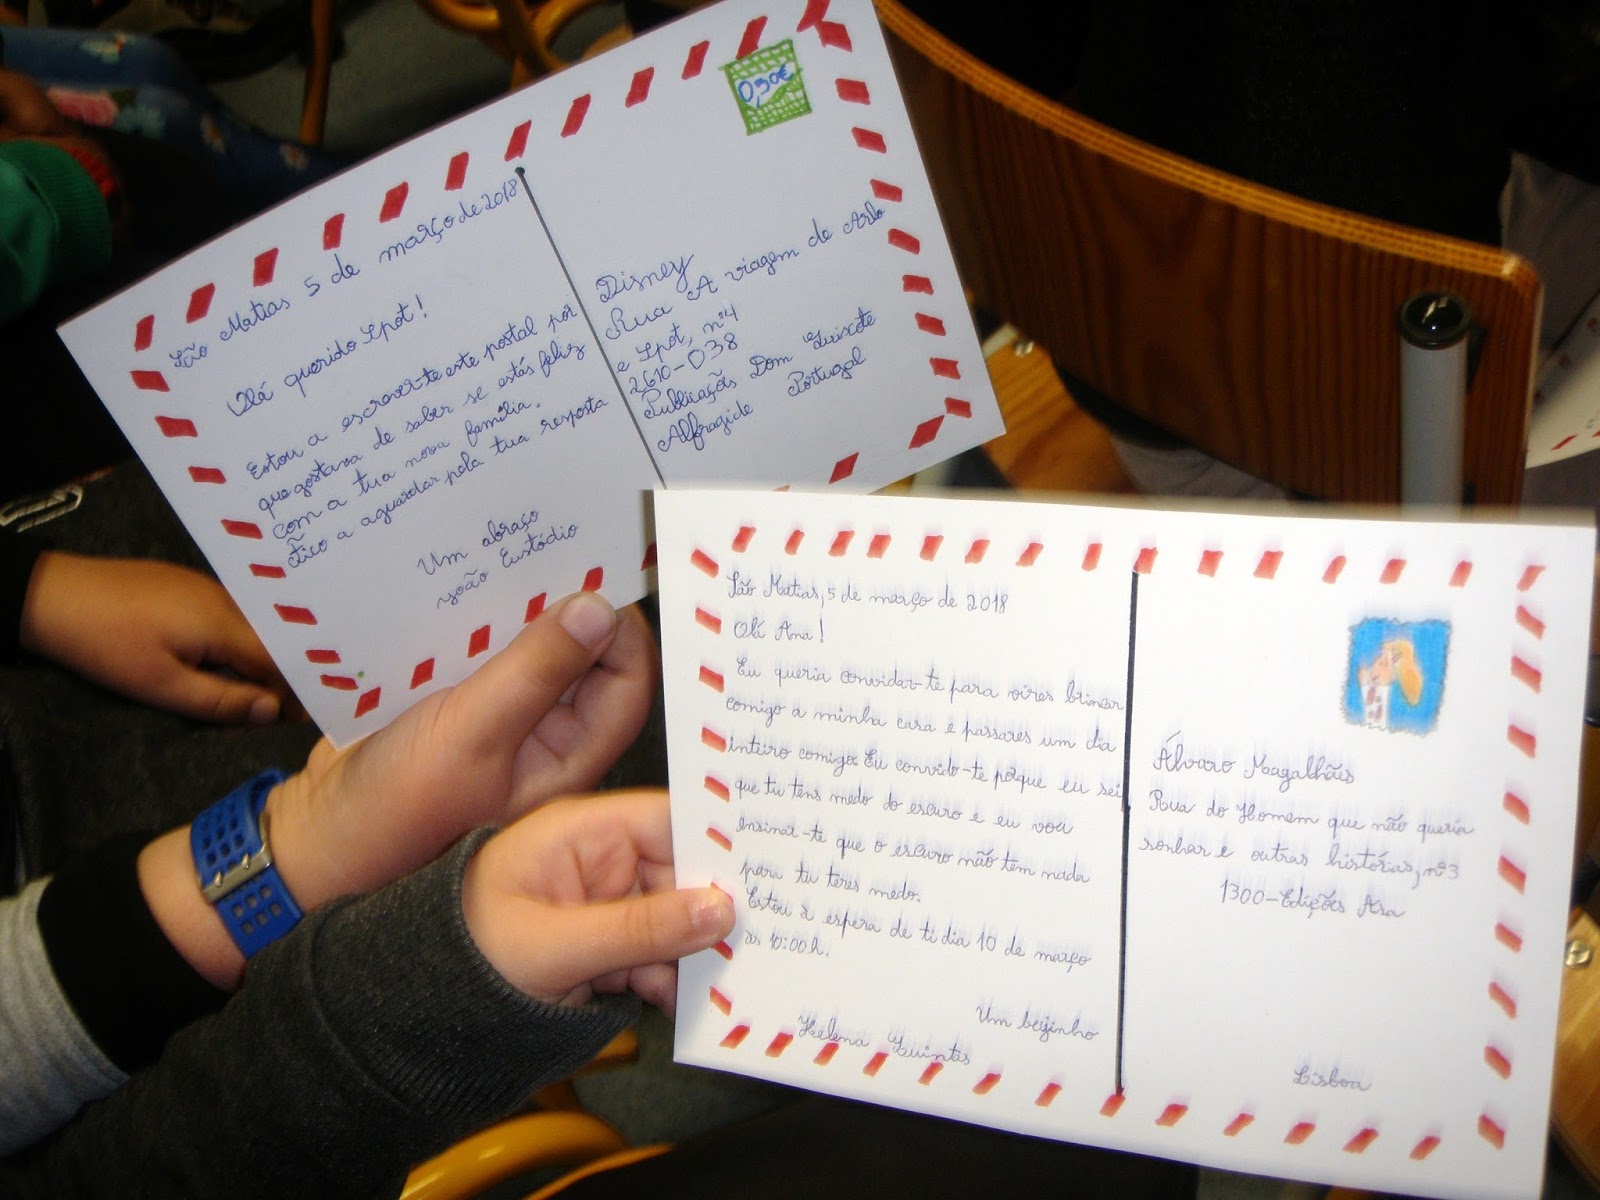 São Matias 5 de março de 2018
Olá querido Spot!
Estou a escrever-te este postal por
que gostava de saber se estás feliz
com a tua nova família.
Fico a aguardar pela tua resposta
Um abraço
João Eustódio
0,90€
Disney
Rua A viagem de Arlo
e Spot, nº4
2610-038
Publicações Dom Quixote
Alfragide Portugal
São Matias, 5 de março de 2018
Olá Ana!
Eu queria convidar-te para vires brincar
comigo a minha casa e passares um dia
inteiro comigo. Eu convido-te porque eu sei
que tu tens medo do escuro e eu vou
ensinar-te que o escuro não tem nada
para tu teres medo.
Estou à espera de ti dia 10 de março
às 10:00h.
Um beijinho
Helena Quintas
Álvaro Magalhães
Rua do Homem que não queria
sonhar e outras histórias, nº3
1300-Edições Asa
Lisboa